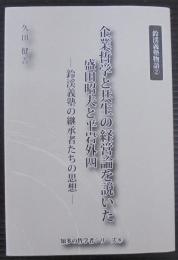 鈴渓義塾物語②
企業哲学と共生の経営論を説いた
盛田昭夫と平岩外四
―鈴渓義塾の継承者たちの思想―
久田健吉
知多の哲学者シリーズ